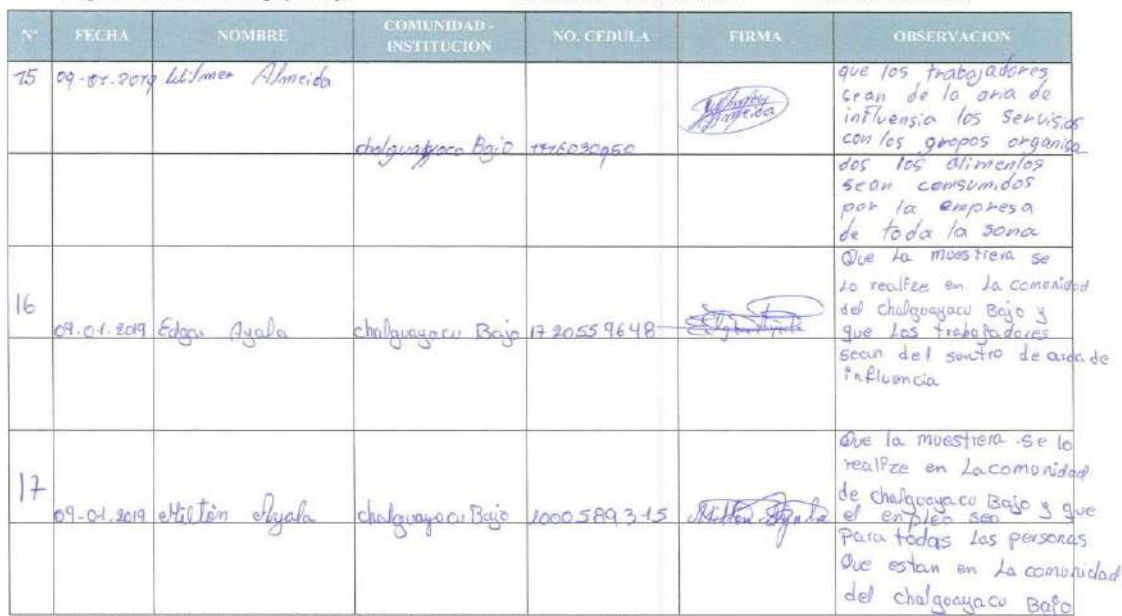 N° FECHA NOMBRE COMUNIDAD - INSTITUCION NO. CEDULA FIRMA OBSERVACION
15 09-01-2019 Wilmer Almeida chalguayaco Bajo 1716030950 Almeida
que los trabajadores
sean de la aria de
influensia los Servisios
con los gropos organisa
dos los alimentos
sean comsumidos
por la empresa
de toda la sona
16 09-01-2019 Edgar Ayala chalguayacu Bajo 1720559648
Que La muestrera se
Lo realize en La comonidad
del Chalguayacu Bajo y
que Los trabajadores
sean del sentro de area de
influencia
17 09-01-2019 Milton Ayala chalguayacu Bajo 1000589315 Milton Ayala
Que la muestrera se lo
realize en La comonidad
de chalguayacu Bajo y que
el enpleo sea
Para todas Las personas
Que estan en La comunidad
del chalgoayacu Bajo